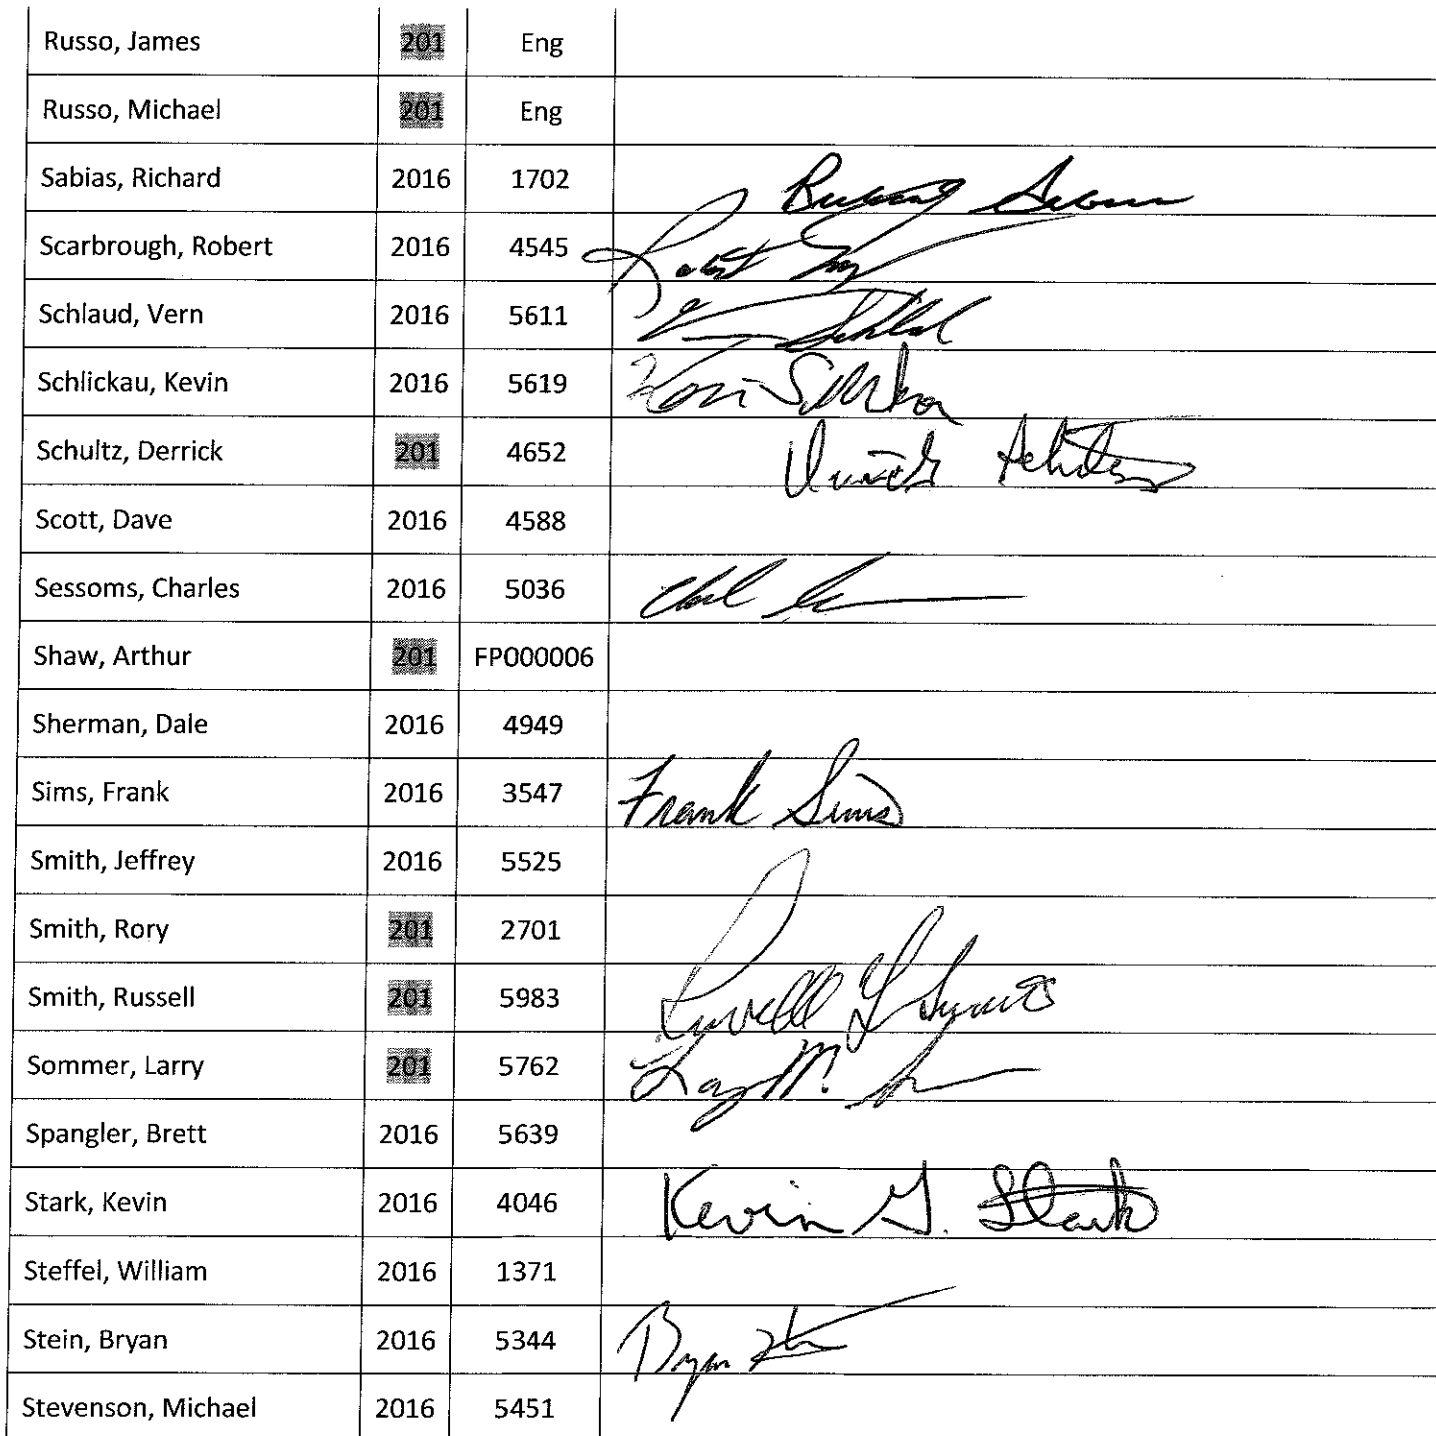 Russo, James 201 Eng
Russo, Michael 201 Eng
Sabias, Richard 2016 1702
Scarbrough, Robert 2016 4545 Robert
Schlaud, Vern 2016 5611
Schlickau, Kevin 2016 5619
Schultz, Derrick 201 4652
Scott, Dave 2016 4588
Sessoms, Charles 2016 5036
Shaw, Arthur 201 FP000006
Sherman, Dale 2016 4949
Sims, Frank 2016 3547 Frank Sims
Smith, Jeffrey 2016 5525
Smith, Rory 201 2701
Smith, Russell 201 5983
Sommer, Larry 201 5762 Larry M.
Spangler, Brett 2016 5639
Stark, Kevin 2016 4046 Kevin G. Stark
Steffel, William 2016 1371
Stein, Bryan 2016 5344 Bryan
Stevenson, Michael 2016 5451